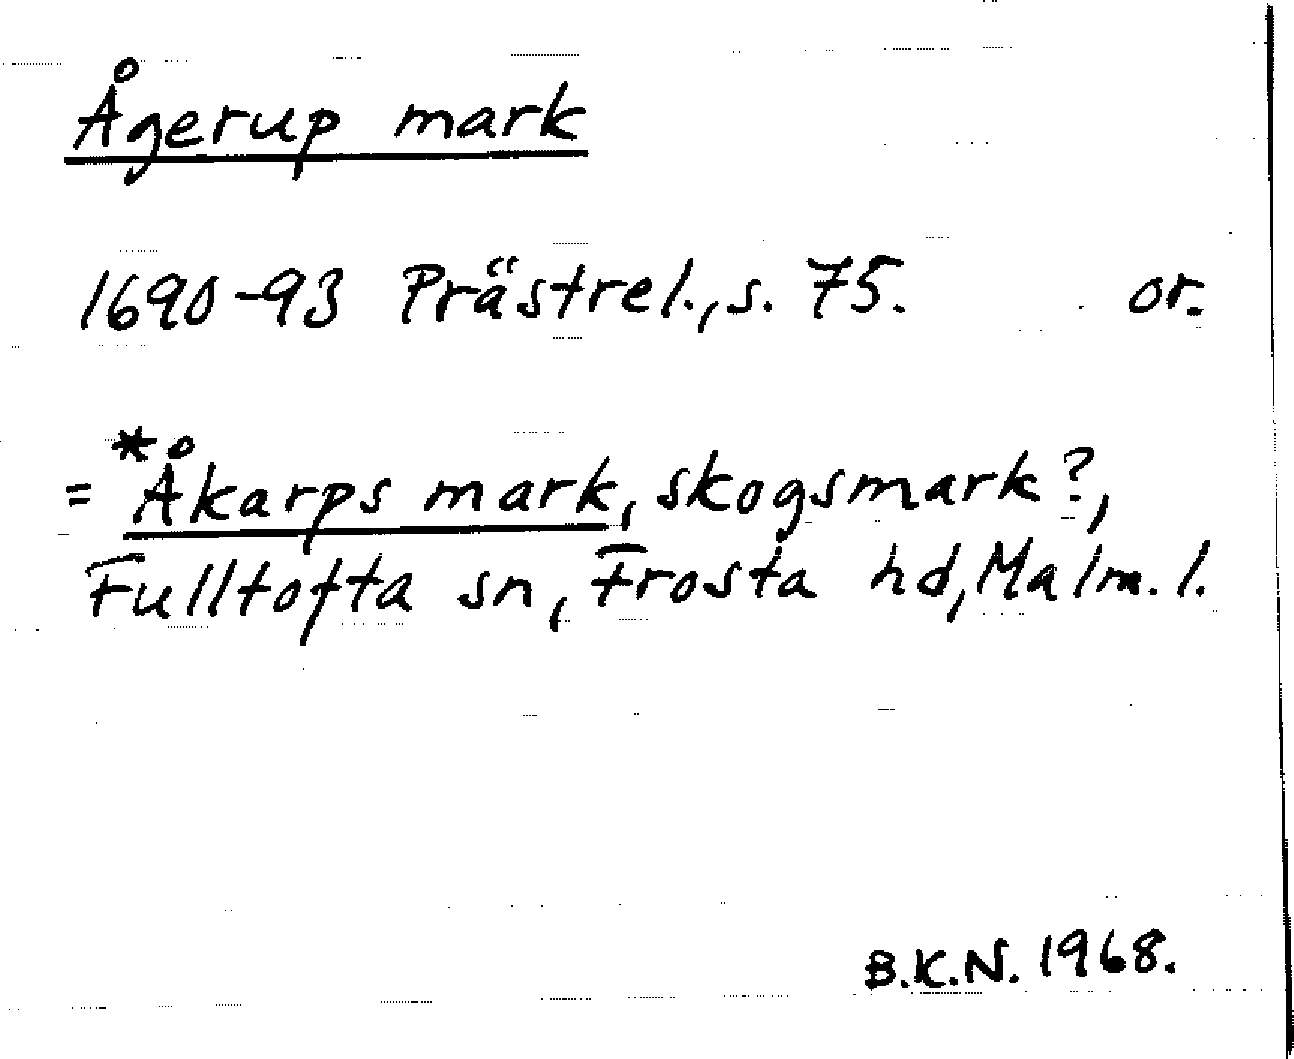 Ågerup mark
1690-93 Prästrel., s. 75. or.
= *Åkarps mark, skogsmark?,
Fulltofta sn, Frosta hd, Malm. l.
B.K.N. 1968.